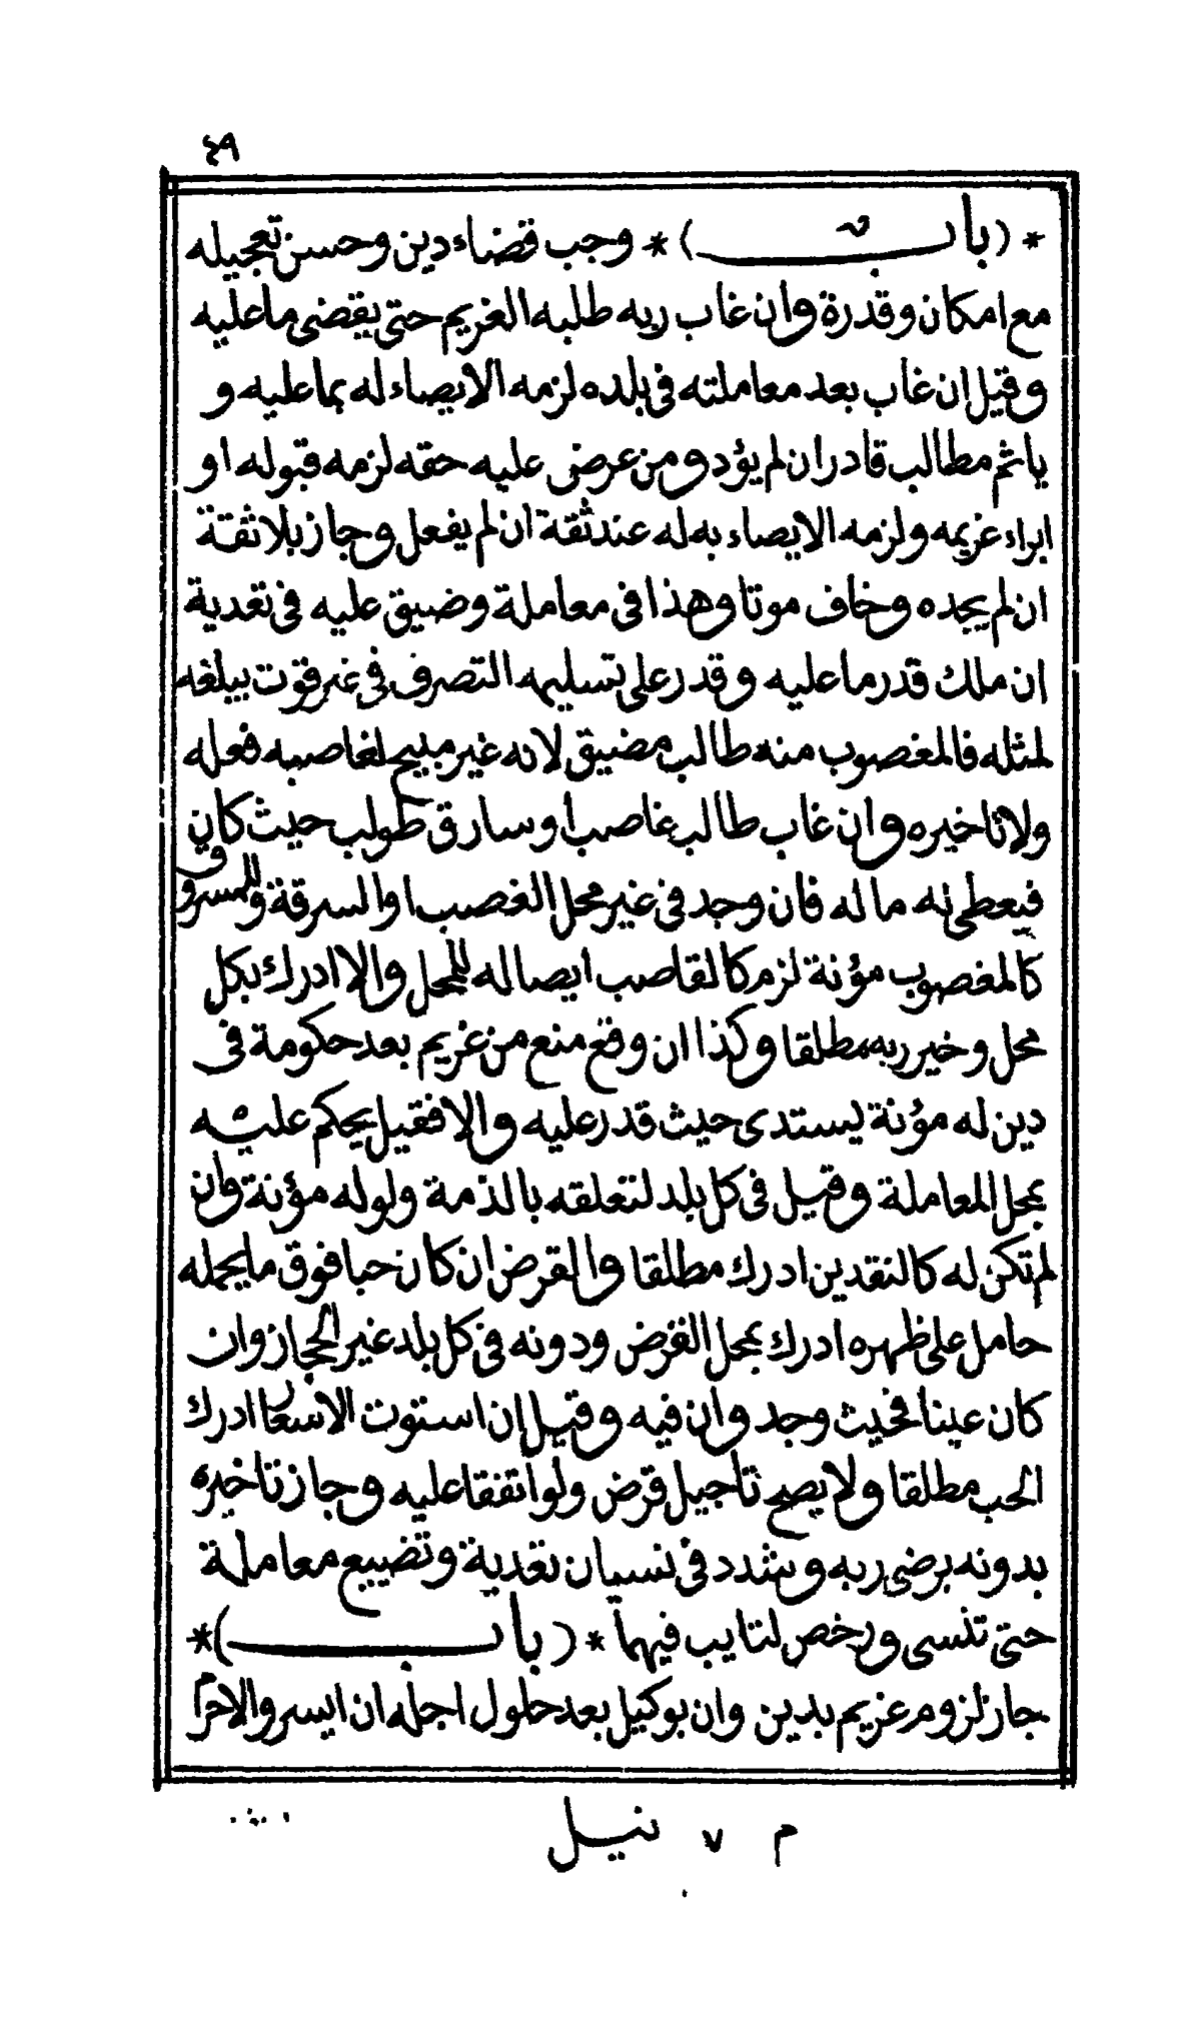 ٤٩
*(باب)* وجب قضاء دين وحسن تعجيله
مع امكان وقدرة وان غاب ربه طلبه الغريم حتى يقضى ما عليه
وقيل ان غاب بعد معاملته فى بلده لزمه الايصاء له بما عليه و
ياثم مطالب قادر ان لم يؤد ومن عرض عليه حقه لزمه قبوله او
ابراء غريمه ولزمه الايصاء به له عند ثقة ان لم يفعل وجاز بلا ثقة
ان لم يجده وخاف موتا وهذا فى معاملة وضيق عليه فى تعدية
ان ملك قدر ما عليه وقدر على تسليمه التصرف فى غير قوت يبلغه
لمثله فالمغصوب منه طالب مضيق لانه غير مبيح لغاصبه فعله
ولا تاخيره وان غاب طالب غاصب او سارق طولب حيث كان
فيعطى له ما له فان وجد فى غير محل الغصب او السرقة وللمسروق
كالمغصوب مؤنة لزم كالغاصب ايصاله للمحل والا ادرك بكل
محل وخير ربه مطلقا وكذا ان وقع منع من غريم بعد حكومة فى
دين له مؤنة ليستدى حيث قدر عليه والا فقيل يحكم عليه
بمحل المعاملة وقيل فى كل بلد لتعلقه بالذمة ولو له مؤنة وان
لم تكن له كالنقدين ادرك مطلقا والقرض ان كان حبا فوق ما يحمله
حامل على ظهره ادرك بمحل القرض ودونه فى كل بلد غير الحجاز وان
كان عينا فحيث وجد وان فيه وقيل ان استوت الاسعار ادرك
الحب مطلقا ولا يصح تاجيل قرض ولو اتفقا عليه وجاز تاخيره
بدونه برضى ربه وشدد فى نسيان تعدية وتضييع معاملة
حتى تنسى ورخص لتايب فيهما *(باب)*
جاز لزوم غريم بدين وان بوكيل بعد حلول اجله ان ايسر والا حرم
م ٧ نيل